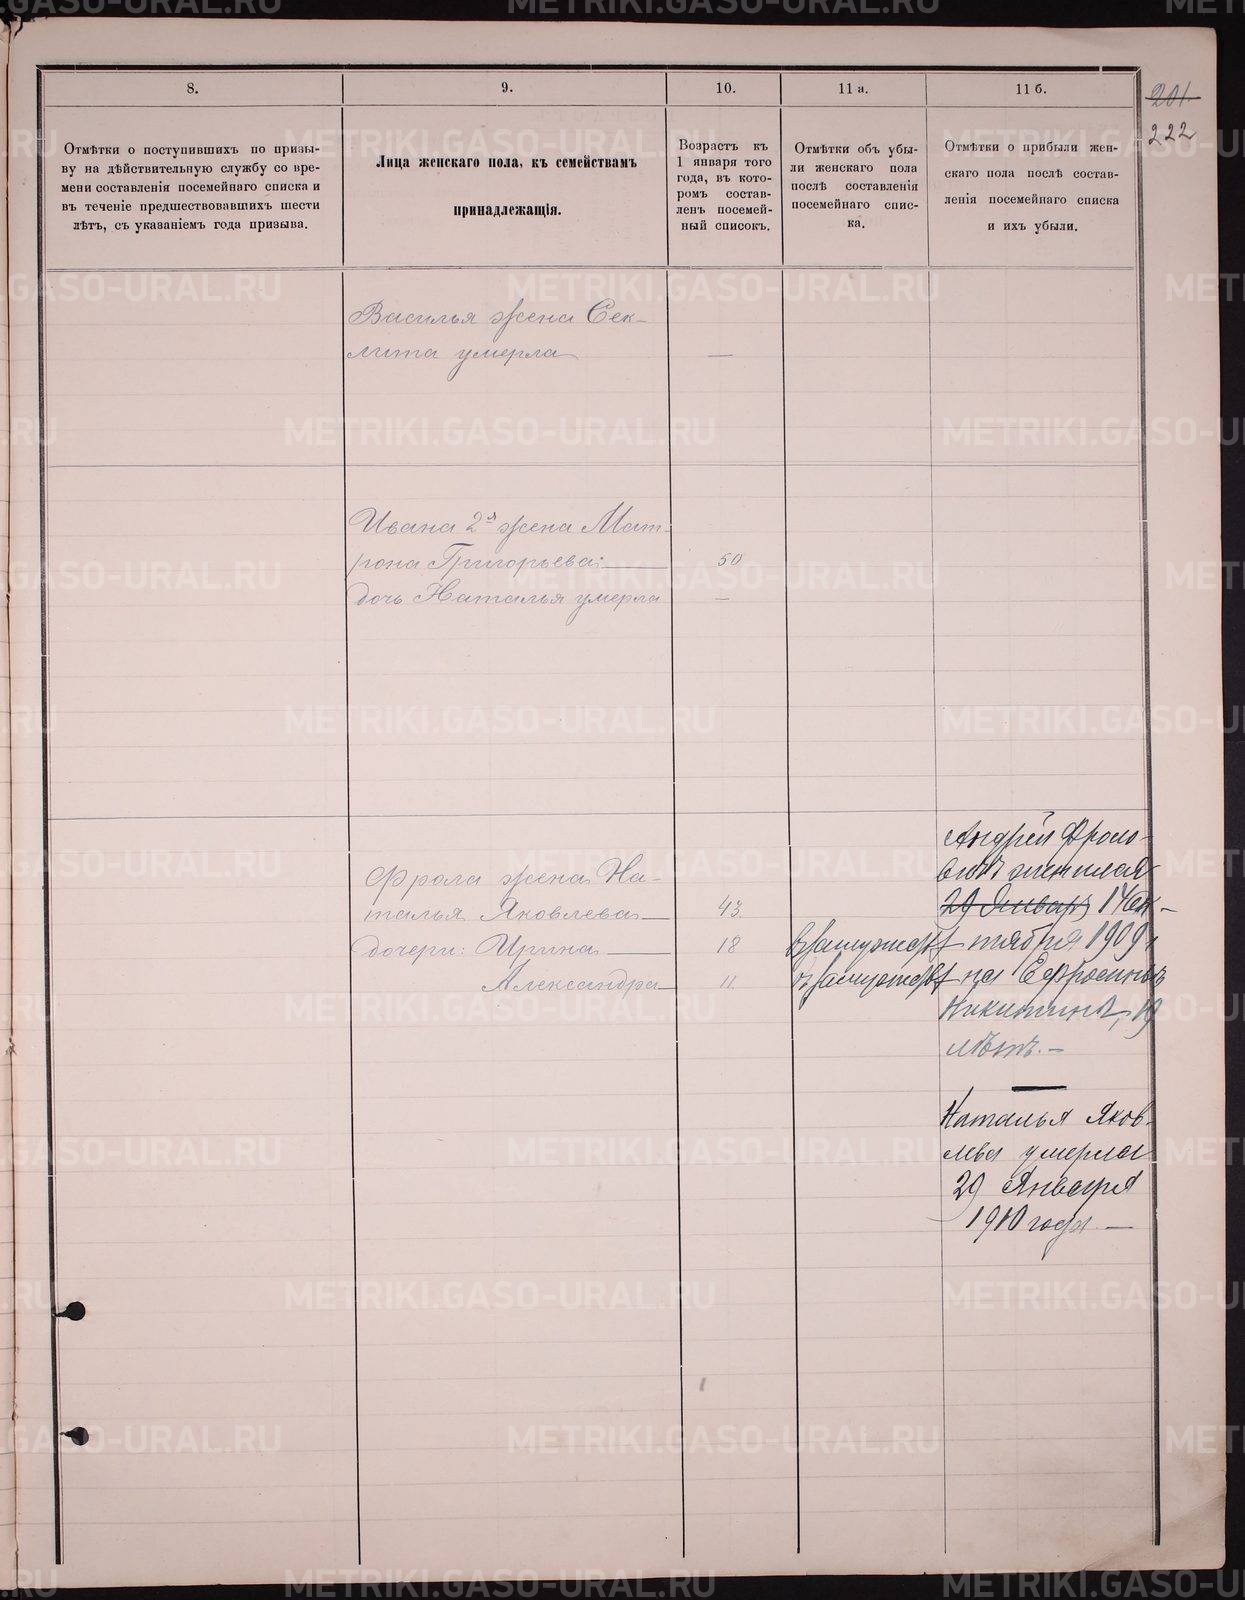 8.
9.
10.
11 а.
11 б.
201.
222
Отмѣтки о поступившихъ по призы-
ву на дѣйствительную службу со вре-
мени составленія посемейнаго списка и
въ теченіе предшествовавшихъ шести
лѣтъ, съ указаніемъ года призыва.
Лица женскаго пола, къ семействамъ
принадлежащія.
Возрастъ къ
1 января того
года, въ кото-
ромъ состав-
ленъ посемей-
ный списокъ.
Отмѣтки объ убы-
ли женскаго пола
послѣ составленія
посемейнаго спис-
ка.
Отмѣтки о прибыли жен-
скаго пола послѣ состав-
ленія посемейнаго списка
и ихъ убыли.
Василья жена Сек-
лита умерла —
Ивана 2я жена Мат-
рона Григорьева: 50
дочь Наталья умерла —
Фрола жена На-
талья Яковлева 43
дочери: Ирина 18 въ замужествѣ
Александра 11. въ замужествѣ
Андрей Фроло-
вичъ женился
29 Января 14 Ок-
тября 1909 г
на Ефросиньѣ
Никитиной, 19
лѣтъ. —
Наталья Яков-
лева умерла
29 Января
1910 года. —
METRIKI.GASO-URAL.RU